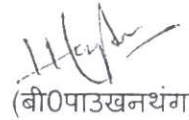 (बी0पाउखनथंग